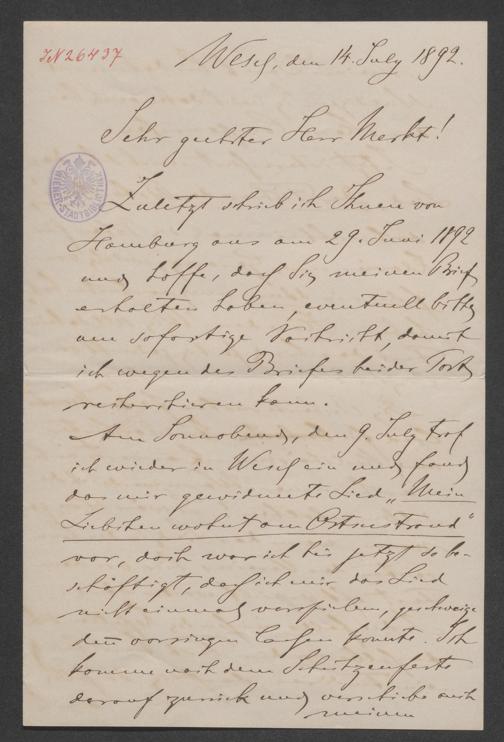 JN 26437
Wesel, den 14. July 1892.
Sehr geehrter Herr Merkt!
WIENER STADTBIBLIOTHEK
Zuletzt schrieb ich Ihnen von
Hamburg aus am 29. Juni 1892
und hoffe, daß Sie meinen Brief
erhalten haben, eventuell bitte
um sofortige Nachricht, damit
ich wegen des Briefes bei der Post
recherchieren kann.
Am Sonnabend, den 9. July traf
ich wieder in Wesel ein und fand
das mir gewidmete Lied „Mein
Liebchen wohnt am Ostseestrand“
vor, doch war ich bis jetzt so be-
schäftigt, daß ich mir das Lied
nicht einmal vorspielen, geschweige
den̄ vorsingen lassen konnte. Ich
komme nach dem Schützenfeste
darauf zurück und verschiebe auch
meinen